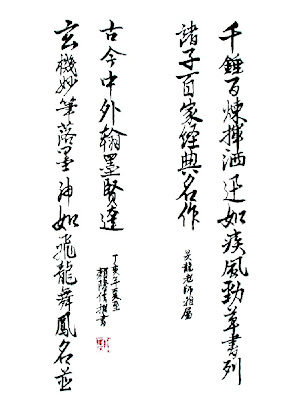 千錘百煉揮洒迅如疾風勁草書列
諸子百家經典名作
吳龍老師雅屬
玄機妙筆落墨神如飛龍舞鳳名並
古今中外翰墨賢達
丁亥年夏至
撰書